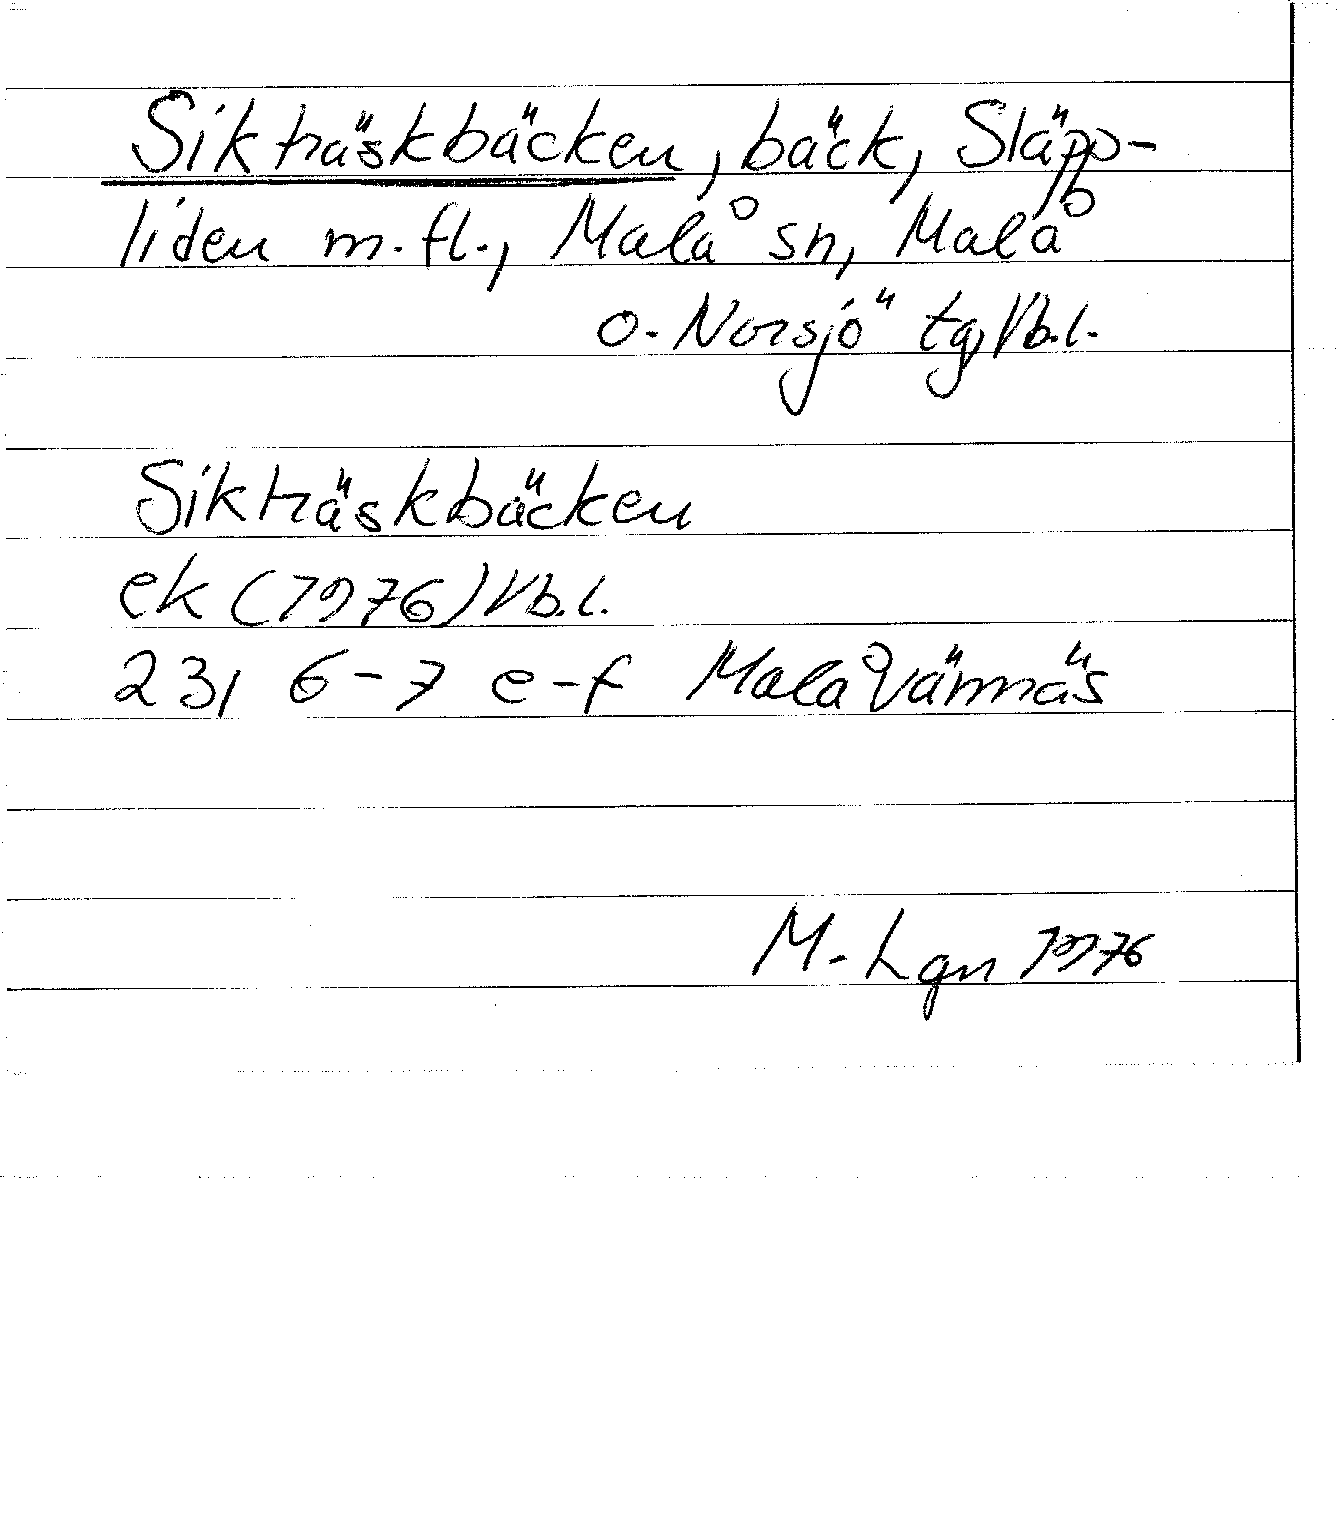 Sikträskbäcken, bäck, Släpp-
liden m.fl., Malå sn, Malå
o. Norsjö tg, Vb.l.
Sikträskbäcken
ek (1976) Vb.l.
23I 6-7 e-f Malåvännäs
M. Lgn 1976